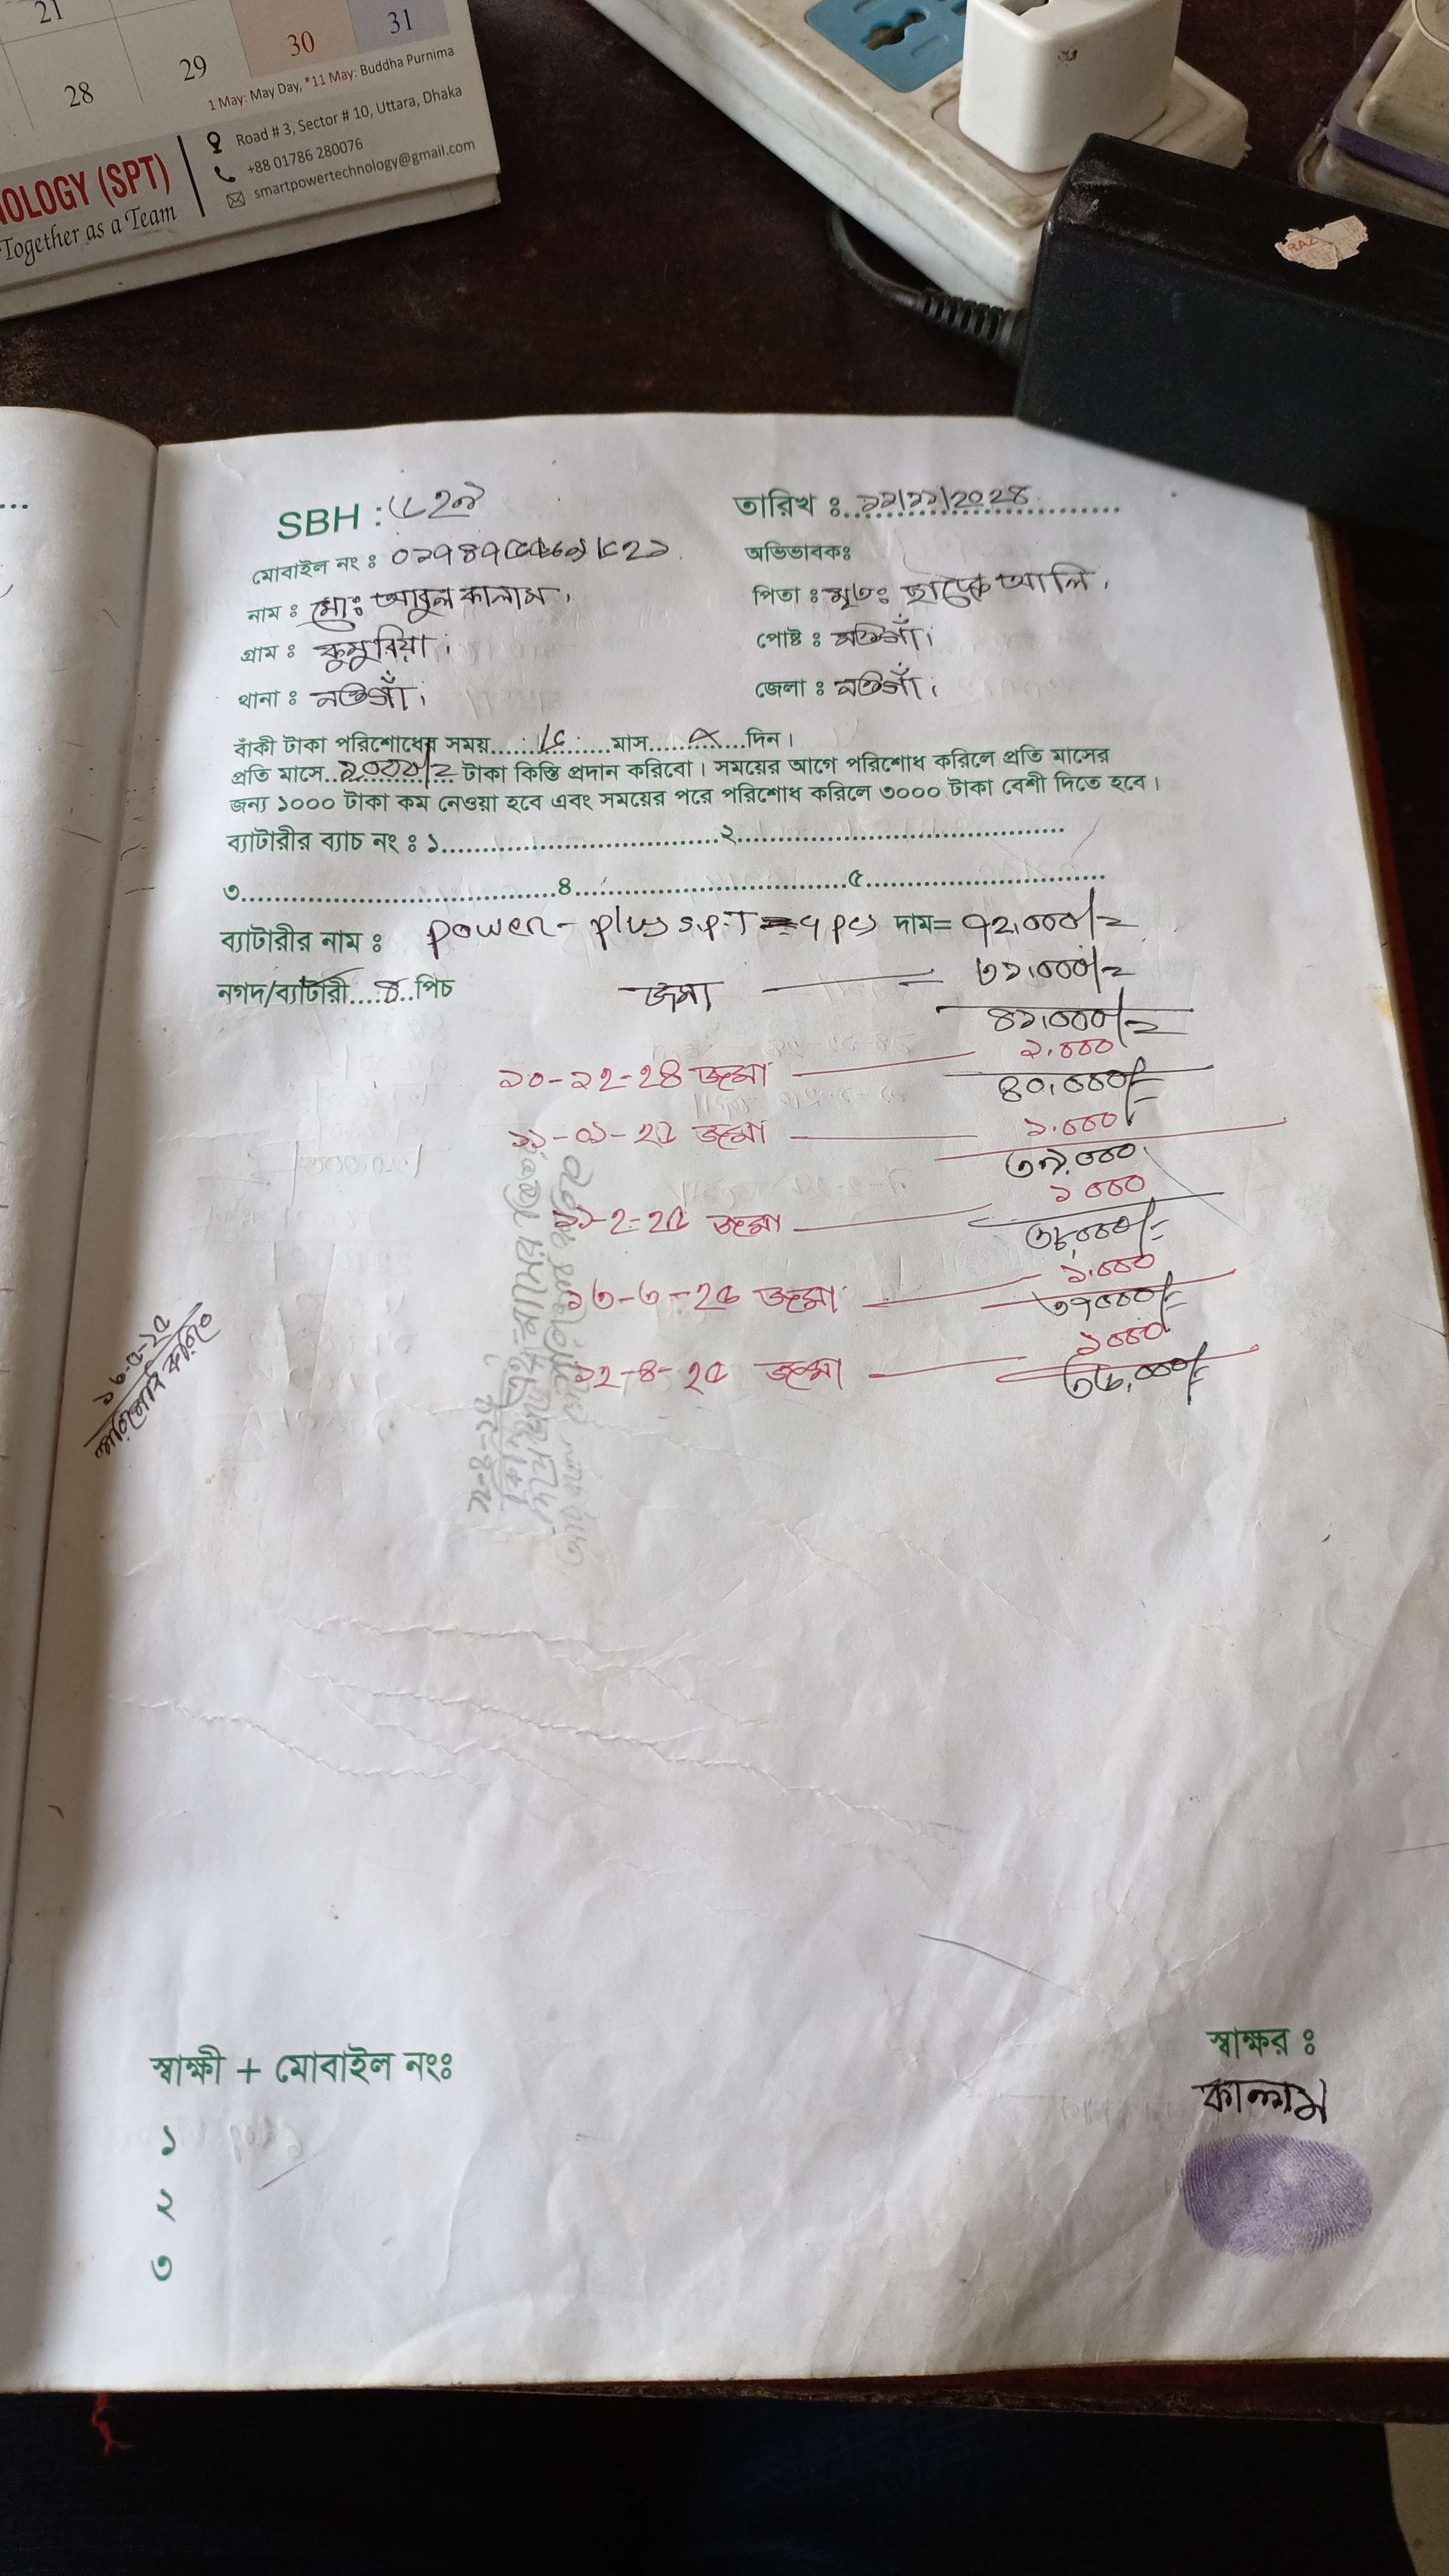 21
28 29 30 31
1 May: May Day, *11 May: Buddha Purnima
NOLOGY (SPT)
Together as a Team
Road # 3, Sector # 10, Uttara, Dhaka
+88 01786 280076
smartpowertechnology@gmail.com
SBH :
তারিখ ঃ ১১/১১/২০২৪
মোবাইল নং ঃ
অভিভাবকঃ
নাম ঃ মোঃ আবুল কালাম।
পিতা ঃ মৃতঃ আলি।
গ্রাম ঃ কুমুরিয়া।
পোষ্ট ঃ নওগাঁ।
থানা ঃ নওগাঁ।
জেলা ঃ নওগাঁ।
বাঁকী টাকা পরিশোধের সময়..........মাস..........দিন।
প্রতি মাসে..১০০০/=..টাকা কিস্তি প্রদান করিবো। সময়ের আগে পরিশোধ করিলে প্রতি মাসের
জন্য ১০০০ টাকা কম নেওয়া হবে এবং সময়ের পরে পরিশোধ করিলে ৩০০০ টাকা বেশী দিতে হবে।
ব্যাটারীর ব্যাচ নং ঃ ১..........২..........
৩..........৪..........৫..........
ব্যাটারীর নাম ঃ power-plus S.P.T = 4 pcs দাম= ৭২,০০০/=
নগদ/ব্যাটারী....৪..পিচ জমা = ৩১,০০০/=
৪১,০০০/=
১০-১২-২৪ জমা ১,০০০
৪০,০০০/=
১১-০১-২৫ জমা ১,০০০/
৩৯,০০০
১১-২-২৫ জমা ১০০০
৩৮,০০০/=
১৩-৩-২৫ জমা ১,০০০
৩৭০০০/=
১২-৪-২৫ জমা ১০০০
৩৬,০০০/=
স্বাক্ষী + মোবাইল নংঃ
স্বাক্ষর ঃ
কালাম
১
২
৩